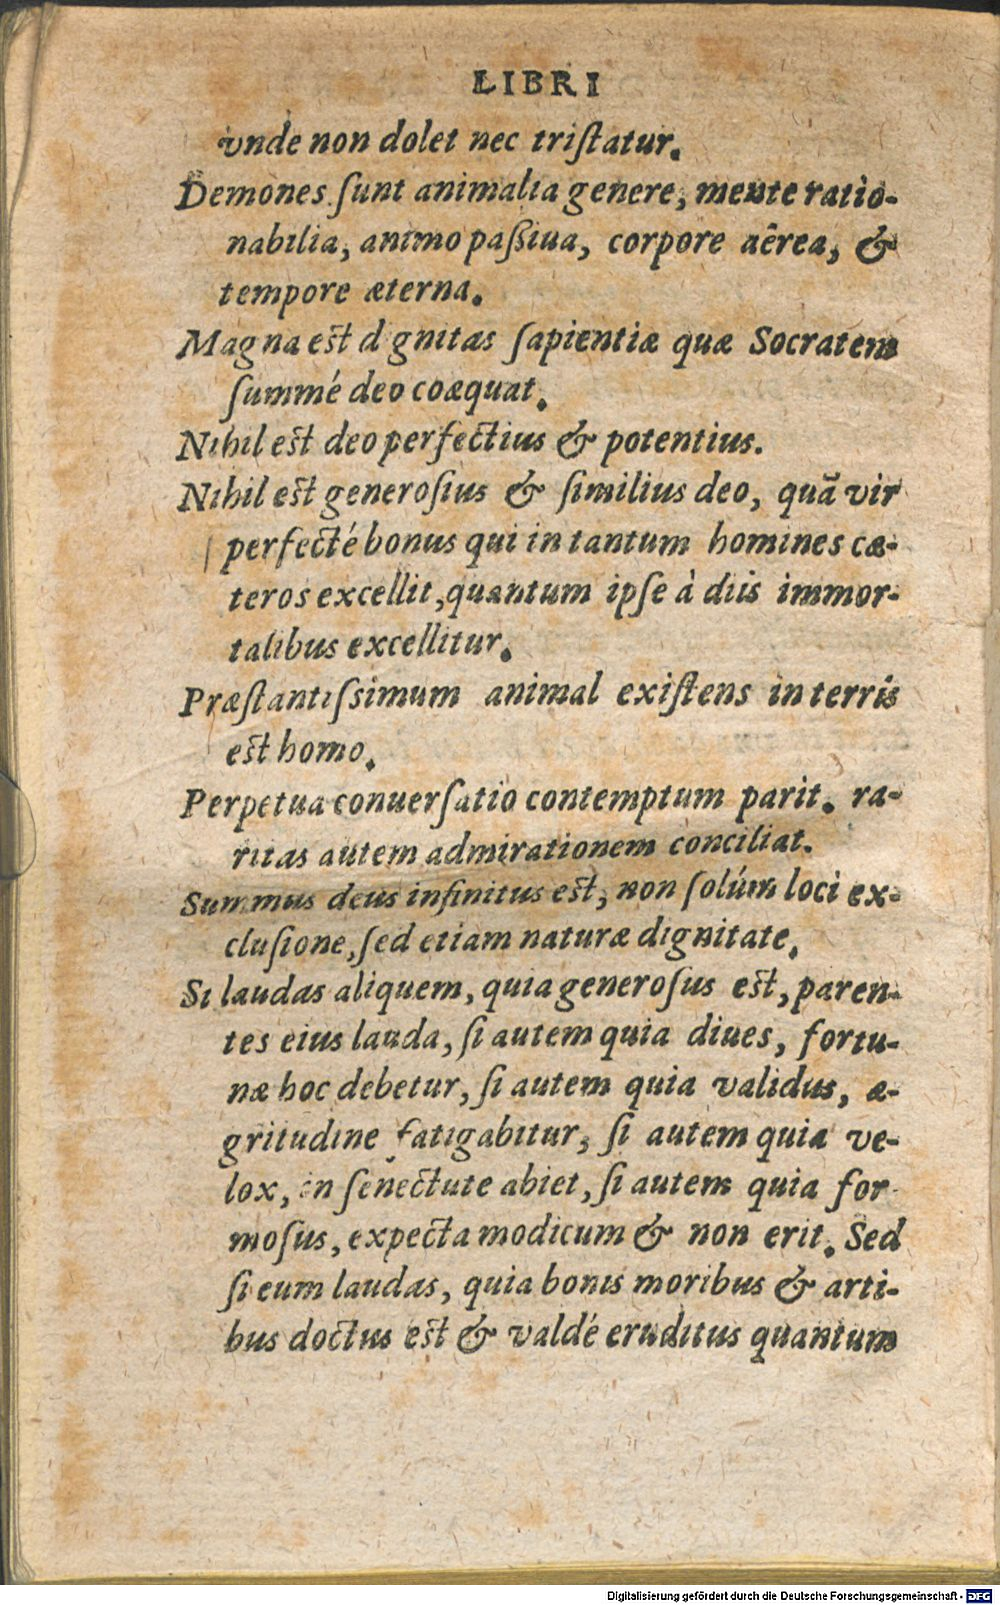 LIBRI
vnde non dolet nec triſtatur.
Demones ſunt animalia genere, mente ratio-
nabilia, animo paſsiua, corpore aërea, &
tempore æterna.
Magna est d gnitas ſapientiæ quæ Socratem
ſummé deo coæquat.
Nihil est deo perfectius & potentius.
Nihil est generoſius & ſimilius deo, quã vir
perfecté bonus qui in tantum homines cæ-
teros excellit, quantum ipſe à diis immor-
talibus excellitur.
Præſtantiſsimum animal exiſtens in terris
est homo.
Perpetua conuerſatio contemptum parit. ra-
ritas autem admirationem conciliat.
Summus deus infinitus est, non ſolúm loci ex-
cluſione, ſed etiam naturæ dignitate.
Si laudas aliquem, quia generoſus est, paren-
tes eius lauda, ſi autem quia diues, fortu-
næ hoc debetur, ſi autem quia validus, æ-
gritudine fatigabitur, ſi autem quia ve-
lox, in ſenectute abiet, ſi autem quia for-
moſus, expecta modicum & non erit. Sed
ſi eum laudas, quia bonis moribus & arti-
bus doctus est & valdé eruditus quantum
Digitalisierung gefördert durch die Deutsche Forschungsgemeinschaft - DFG